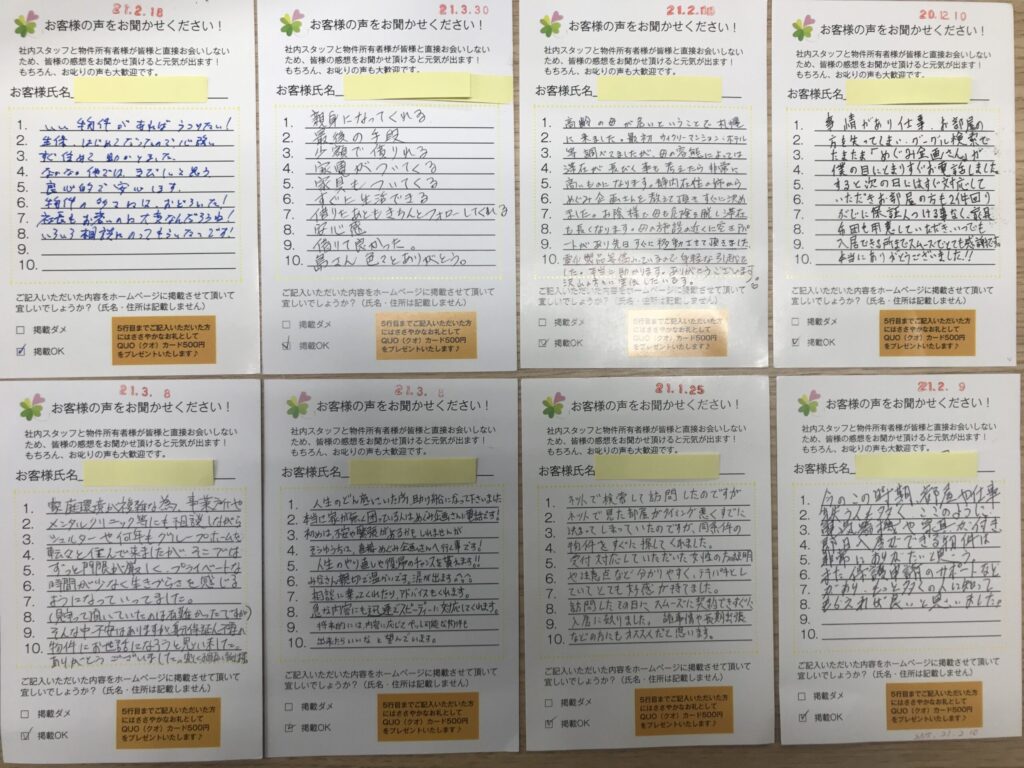 21.2.18
お客様の声をお聞かせください！
社内スタッフと物件所有者様が皆様と直接お会いしない
ため、皆様の感想をお聞かせ頂けると元気が出ます！
もちろん、お叱りの声も大歓迎です。
お客様氏名
1. いい物件があればうつりたい！
2.
3.
4.
5. 良心的で安心します。
6.
7.
8.
9.
10.
ご記入いただいた内容をホームページに掲載させて頂いて
宜しいでしょうか？（氏名・住所は記載しません）
掲載ダメ
掲載OK
5行目までご記入いただいた方
にはささやかなお礼として
QUO（クオ）カード500円
をプレゼントいたします♪
21.3.30
お客様の声をお聞かせください！
社内スタッフと物件所有者様が皆様と直接お会いしない
ため、皆様の感想をお聞かせ頂けると元気が出ます！
もちろん、お叱りの声も大歓迎です。
お客様氏名
1. 親身になってくれる
2. 最後の手段
3. 少額で借りれる
4. 家電がついてくる
5. 家具もついてくる
6. すぐに生活できる
7. 借りたあともきちんとフォローしてくれる
8. 安心感
9. 借りて良かった。
10. 島さん 色々とありがとう。
ご記入いただいた内容をホームページに掲載させて頂いて
宜しいでしょうか？（氏名・住所は記載しません）
掲載ダメ
掲載OK
5行目までご記入いただいた方
にはささやかなお礼として
QUO（クオ）カード500円
をプレゼントいたします♪
21.2
お客様の声をお聞かせください！
社内スタッフと物件所有者様が皆様と直接お会いしない
ため、皆様の感想をお聞かせ頂けると元気が出ます！
もちろん、お叱りの声も大歓迎です。
お客様氏名
1. 高齢の母が居るということで札幌
2. に来ました。最初ウィークリーマンション・ホテル
3.
4. 滞在が長びく事も考えたら非常に
5. 高いものになります。
6. めぐみ企画さんを教えて頂きすぐに決め
7. ました。お陰様で母も危険を脱し滞在
8. も長くなります。母の施設の近くに空き
9.
10.
ご記入いただいた内容をホームページに掲載させて頂いて
宜しいでしょうか？（氏名・住所は記載しません）
掲載ダメ
掲載OK
5行目までご記入いただいた方
にはささやかなお礼として
QUO（クオ）カード500円
をプレゼントいたします♪
20.12.10
お客様の声をお聞かせください！
社内スタッフと物件所有者様が皆様と直接お会いしない
ため、皆様の感想をお聞かせ頂けると元気が出ます！
もちろん、お叱りの声も大歓迎です。
お客様氏名
1. 事情があり仕事・お部屋の
2. 方を失ってしまい、グーグル検索で
3. たまたま「めぐみ企画さん」が
4. 僕の目にとまりすぐお電話しました。
5. すると次の日にはすぐ対応して
6. いただきお部屋の方も2件回り
7.
8.
9. 入居できる所までスムーズでとても感謝です。
10. 本当にありがとうございました!!
ご記入いただいた内容をホームページに掲載させて頂いて
宜しいでしょうか？（氏名・住所は記載しません）
掲載ダメ
掲載OK
5行目までご記入いただいた方
にはささやかなお礼として
QUO（クオ）カード500円
をプレゼントいたします♪
21.3.8
お客様の声をお聞かせください！
社内スタッフと物件所有者様が皆様と直接お会いしない
ため、皆様の感想をお聞かせ頂けると元気が出ます！
もちろん、お叱りの声も大歓迎です。
お客様氏名
1. 家庭環境が複雑な為、事業所や
2. メンタルクリニック等にも相談しながら
3. シェルターや何年もグループホームを
4. 転々と住んで来ましたが、そこでは
5. ずっと門限が厳しく、プライベートな
6. 時間が少なく生きづらさを感じる
7. ようになっていってました。
8. (見守って頂いていたのは有難かったですが)
9.
10. 物件にお世話になろうと思いました。
ありがとうございました。
ご記入いただいた内容をホームページに掲載させて頂いて
宜しいでしょうか？（氏名・住所は記載しません）
掲載ダメ
掲載OK
5行目までご記入いただいた方
にはささやかなお礼として
QUO（クオ）カード500円
をプレゼントいたします♪
21.3.8
お客様の声をお聞かせください！
社内スタッフと物件所有者様が皆様と直接お会いしない
ため、皆様の感想をお聞かせ頂けると元気が出ます！
もちろん、お叱りの声も大歓迎です。
お客様氏名
1. 人生のどん底にいた所助け船になって下さいました
2. 本当に家が無く困っている人はめぐみ企画さんに電話です！
3. 初めは不安や緊張があるかもしれませんが
4.
5. 人生のやり直しも復帰のチャンスを貰えます!!
6. みなさん親切で温かいです。涙が出ます
7. 相談に乗ってくれたり、アドバイスもくれます。
8.
9.
10. 出来たらいいなと望んでいます。
ご記入いただいた内容をホームページに掲載させて頂いて
宜しいでしょうか？（氏名・住所は記載しません）
掲載ダメ
掲載OK
5行目までご記入いただいた方
にはささやかなお礼として
QUO（クオ）カード500円
をプレゼントいたします♪
21.1.25
お客様の声をお聞かせください！
社内スタッフと物件所有者様が皆様と直接お会いしない
ため、皆様の感想をお聞かせ頂けると元気が出ます！
もちろん、お叱りの声も大歓迎です。
お客様氏名
1. ネットで検索して訪問したのですが
2. ネットで見た部屋がタイミング悪くすでに
3. 決まってしまっていたのですが、同条件の
4. 物件をすぐに探してくれました。
5. 受付対応していただいた女性の方の説明
6. や注意点など分かりやすく、テキパキとし
7. ていてとても好感が持てました。
8. 訪問したその日にスムーズに契約できすぐに
9. 入居に至りました。諸事情や長期出張
10. などの方にもオススメだと思います。
ご記入いただいた内容をホームページに掲載させて頂いて
宜しいでしょうか？（氏名・住所は記載しません）
掲載ダメ
掲載OK
5行目までご記入いただいた方
にはささやかなお礼として
QUO（クオ）カード500円
をプレゼントいたします♪
21.2.9
お客様の声をお聞かせください！
社内スタッフと物件所有者様が皆様と直接お会いしない
ため、皆様の感想をお聞かせ頂けると元気が出ます！
もちろん、お叱りの声も大歓迎です。
お客様氏名
1. 今のこの時期、部屋や仕事
2. を失う人も多く、ここのように
3. 電気機や家具が付き
4. 即日入居ができる物件は
5. 非常にありがたいと思う。
6. また保護申請のサポートなど
7. があり、もっと多くの人に知って
8. もらえれば良いと思いました。
9.
10.
ご記入いただいた内容をホームページに掲載させて頂いて
宜しいでしょうか？（氏名・住所は記載しません）
掲載ダメ
掲載OK
5行目までご記入いただいた方
にはささやかなお礼として
QUO（クオ）カード500円
をプレゼントいたします♪